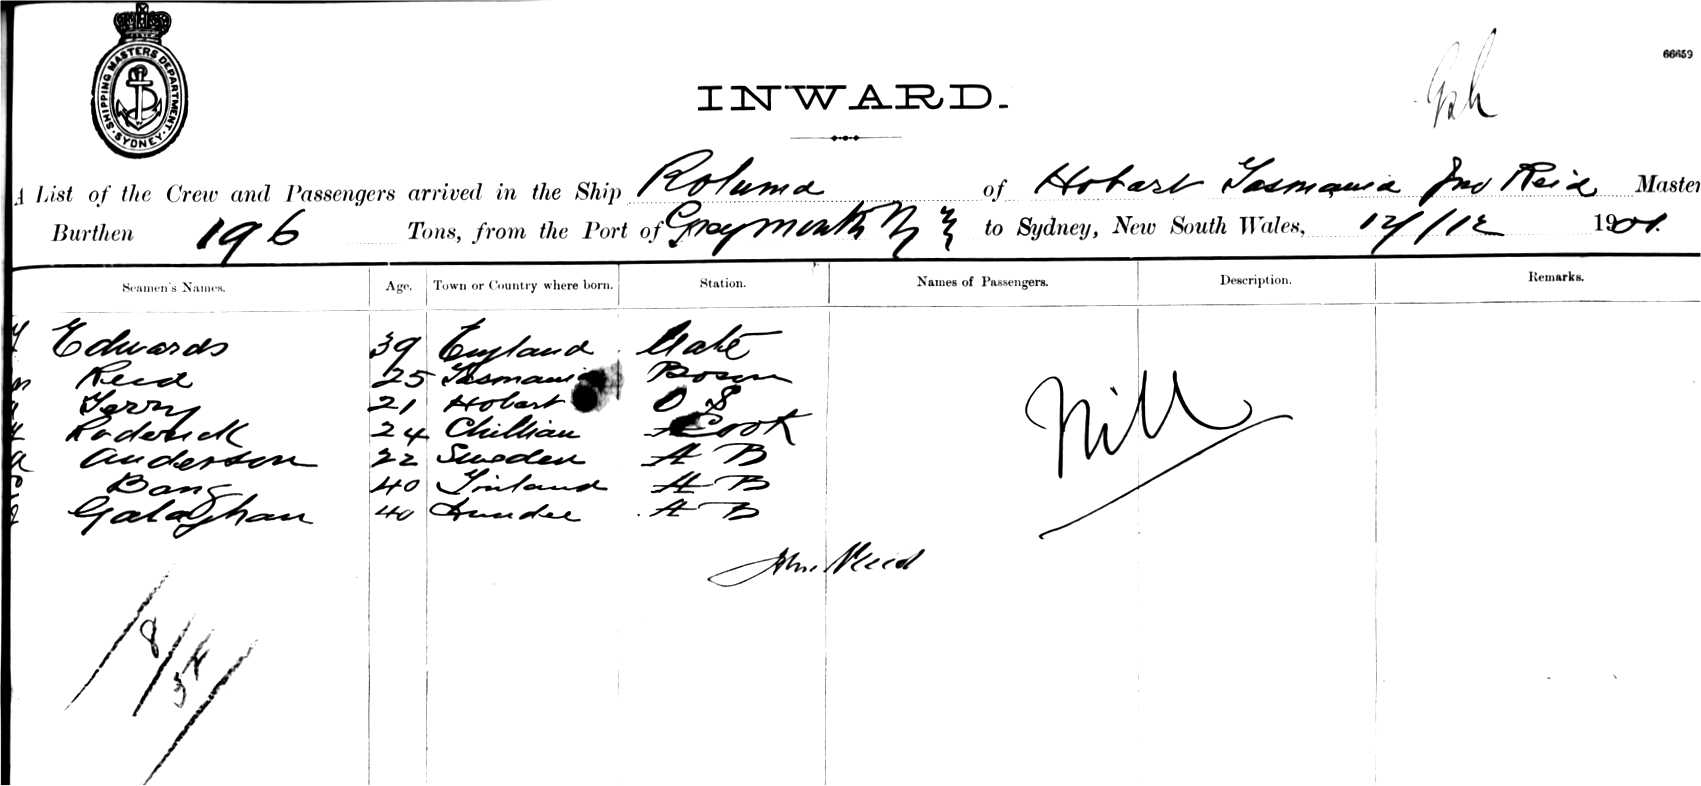 SHIPPING MASTERS DEPARTMENT. SYDNEY
66659
INWARD.
A List of the Crew and Passengers arrived in the Ship Rotuma of Hobart Tasmania Jno Reid Master
Burthen 196 Tons, from the Port of Greymouth N Z to Sydney, New South Wales, 12/12 1901.
Seamen's Names. Age. Town or Country where born. Station. Names of Passengers. Description. Remarks.
Edwards 39 England Mate
Reid 25 Tasmania Bosun
Terry 21 Hobart O S
Roderick 24 Chillian Cook
Anderson 22 Sweden A B
Bang 40 Finland A B
Galaghan 40 Dundee A B
Nill
John Reid
8